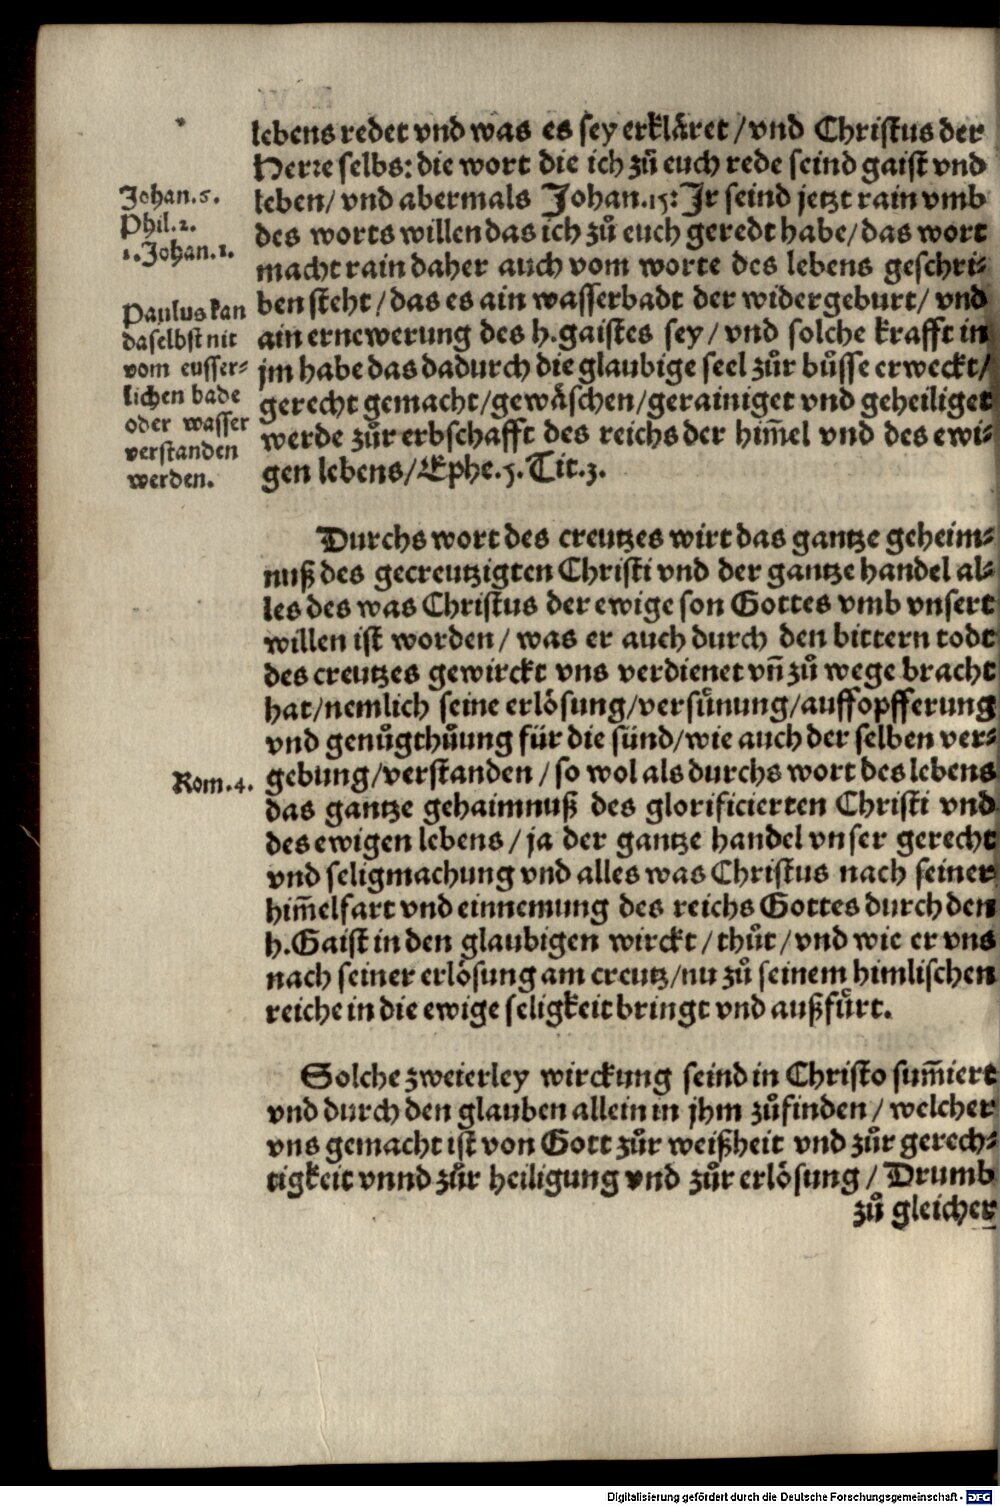 lebens redet vnd was es sey erkläret / vnd Christus der
Herre selbs: die wort die ich zů euch rede seind gaist vnd
leben / vnd abermals Johan.15: Ir seind jetzt rain vmb
des worts willen das ich zů euch geredt habe / das wort
macht rain daher auch vom worte des lebens geschri⸗
ben steht / das es ain wasserbadt der widergeburt / vnd
ain ernewerung des h. gaistes sey / vnd solche krafft in
jm habe das dadurch die glaubige seel zůr bůsse erweckt /
gerecht gemacht / gewäschen / gerainiget vnd geheiliget
werde zůr erbschafft des reichs der him̃el vnd des ewi⸗
gen lebens / Ephe.5. Tit.3.
Johan.5.
Phil.2.
1.Johan.1.
Paulus kan
daselbst nit
vom eusser⸗
lichen bade
oder wasser
verstanden
werden.
Durchs wort des creutzes wirt das gantze geheim⸗
nuß des gecreutzigten Christi vnd der gantze handel al⸗
les des was Christus der ewige son Gottes vmb vnsert
willen ist worden / was er auch durch den bittern todt
des creutzes gewirckt vns verdienet vñ zů wege bracht
hat / nemlich seine erlösung / versůnung / auffopfferung
vnd genůgthůung für die sünd / wie auch der selben ver⸗
gebung / verstanden / so wol als durchs wort des lebens
das gantze gehaimnuß des glorificierten Christi vnd
des ewigen lebens / ja der gantze handel vnser gerecht
vnd seligmachung vnd alles was Christus nach seiner
him̃elfart vnd einnemung des reichs Gottes durch den
h. Gaist in den glaubigen wirckt / thůt / vnd wie er vns
nach seiner erlösung am creutz / nu zů seinem himlischen
reiche in die ewige seligkeit bringt vnd außfůrt.
Rom.4.
Solche zweierley wirckung seind in Christo sum̃iert
vnd durch den glauben allein in jhm zůfinden / welcher
vns gemacht ist von Gott zůr weißheit vnd zůr gerech⸗
tigkeit vnnd zůr heiligung vnd zůr erlösung / Drumb
zů gleicher
Digitalisierung gefördert durch die Deutsche Forschungsgemeinschaft - DFG